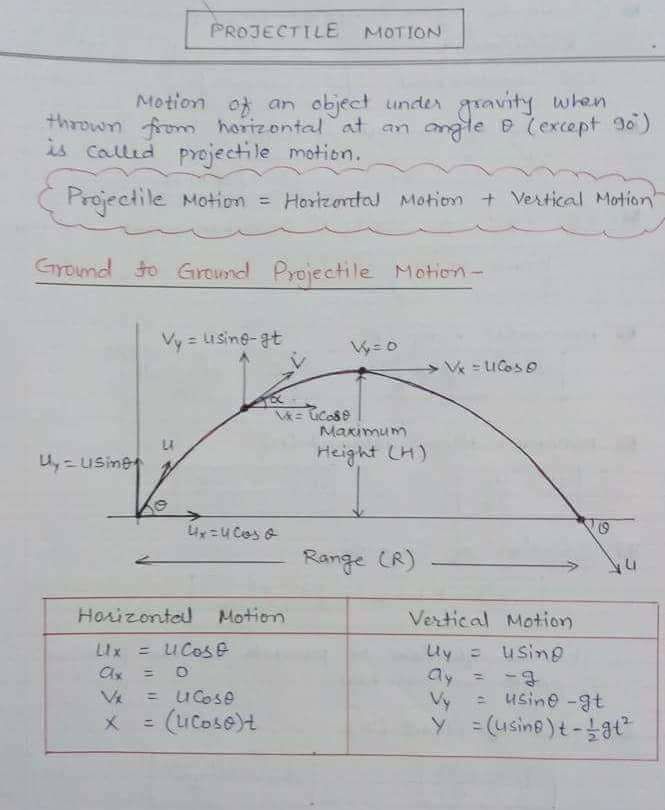 PROJECTILE MOTION
Motion of an object under gravity when
thrown from horizontal at an angle θ (except 90°)
is called projectile motion.
Projectile Motion = Horizontal Motion + Vertical Motion
Ground to Ground Projectile Motion -
Vy = usinθ-gt
Vy = 0
V
Vx = ucosθ
α
Vx = ucosθ
Maximum
Height (H)
u
uy = usinθ
θ
θ
ux = ucosθ
u
Range (R)
Horizontal Motion
ux = ucosθ
ax = 0
Vx = ucosθ
X = (ucosθ)t
Vertical Motion
uy = usinθ
ay = -g
Vy = usinθ -gt
Y = (usinθ)t - 1/2 gt²